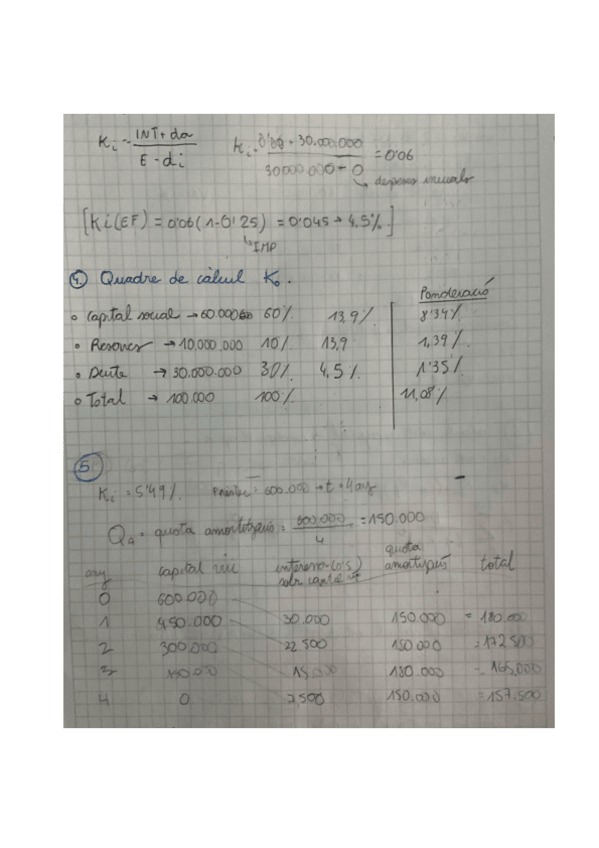 Ki = INT + da / E - di    Ki = 0'06 · 30.000.000 / 30000000 - 0 = 0'06
↳ despeses inicials
[Ki(EF) = 0'06(1-0'25) = 0'045 → 4,5%]
↳ IMP
4. Quadre de càlcul Ko.
Ponderació
• Capital social → 60.000000 60% 13,9% 8'34%
• Reserves → 10.000.000 10% 13,9 1,39%
• Deute → 30.000.000 30% 4,5% 1'35%
• Total → 100.000 100% 11,08%
5
Ki = 5'49% 600.000 → t = 4 anys
QA = quota amortització = 600.000 / 4 = 150.000
any capital viu interessos (0'5) sobre capital quota amortització total
0 600.000
1 450.000 30.000 150.000 = 180.000
2 300.000 22 500 150 000 = 172 500
3 150.000 15.000 150.000 = 165,000
4 0 7,500 150.000 = 157.500